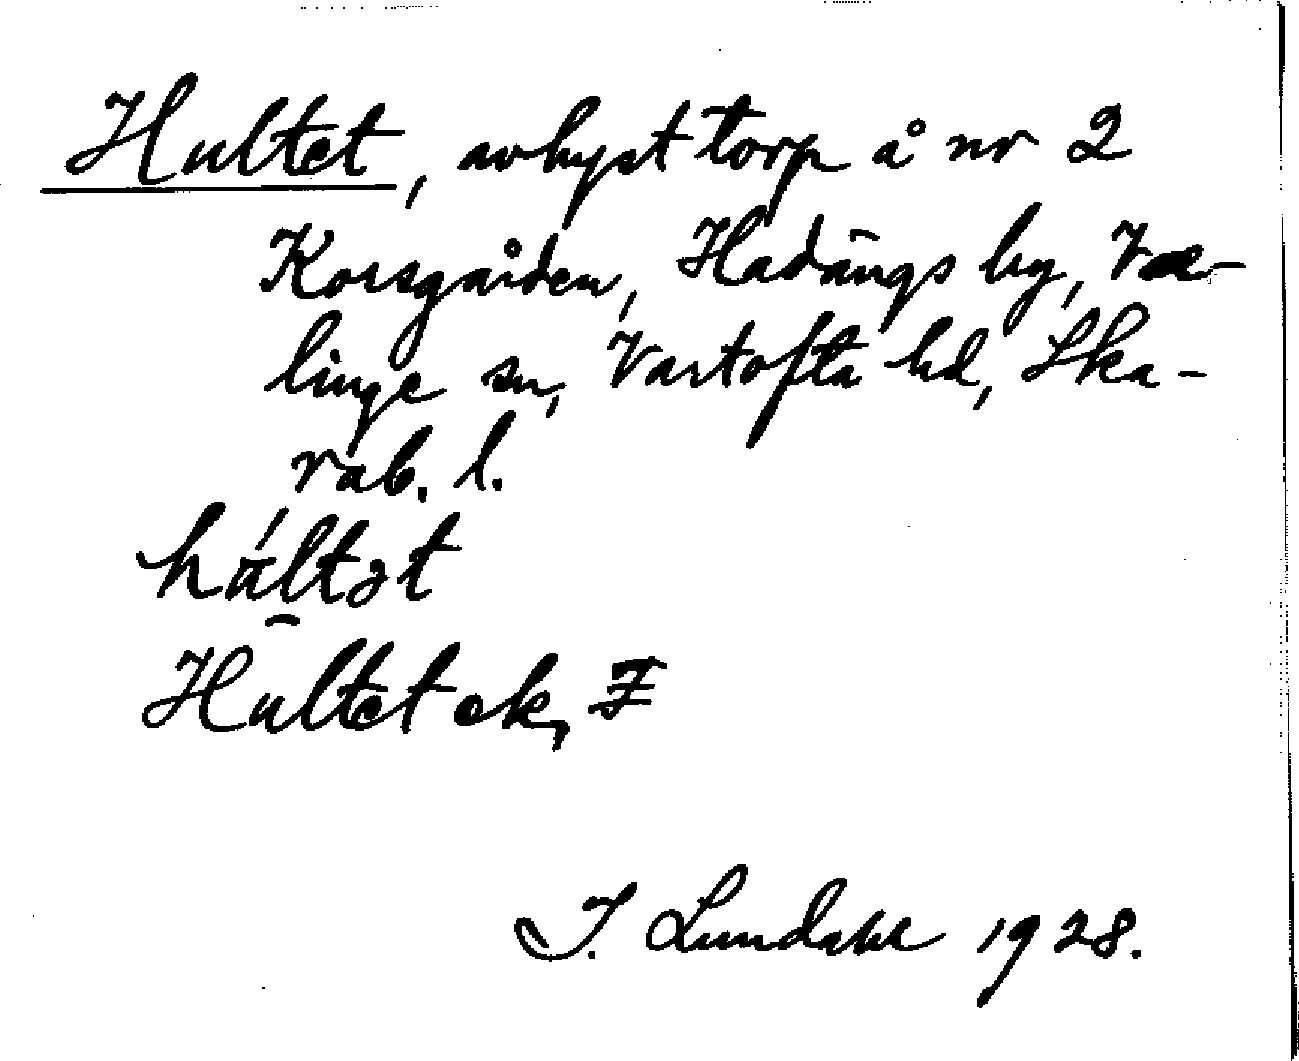 Hultet, avhyst torp å nr 2
Korsgården, Hadängs by, Væ-
linge sn, Vartofta hd, Ska-
rab. l.
húltət
Hultet ek, F
I. Lundahl 1928.